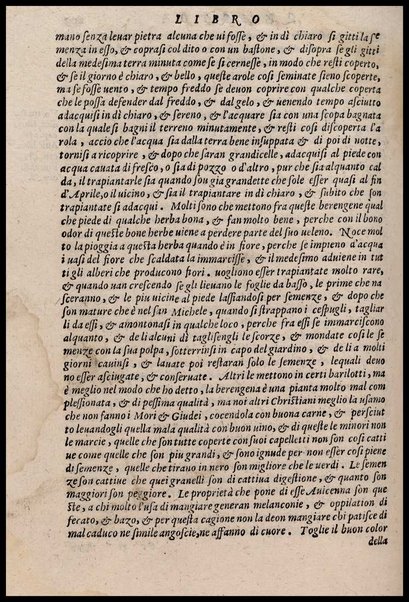 LIBRO
mano senza leuar pietra alcuna che ui fosse, & in dì chiaro si gitti la se
menza in esso, & coprasi col dito o con un bastone, & disopra se gli gitti
della medesima terra minuta come se si cernesse, in modo che resti coperto,
& se il giorno è chiaro, & bello, queste arole così seminate sieno scoperte,
ma se fosse uento, & tempo freddo se deuon coprire con qualche coperta
che le possa defender dal freddo, & dal gelo, & uenendo tempo asciutto
adacquisi in dì chiaro, & sereno, & l'acquare sia con una scopa bagnata
con la quale si bagni il terreno minutamente, & resti così discoperta l'a
rola, accio che l'acqua sia dalla terra bene insuppata & di poi di notte,
tornisi a ricoprire, & dopo che saran grandicelle, adacquisi al piede con
acqua cauata di fresco, o sia di pozzo o d'altro, pur che sia alquanto cal
da, il trapiantarle sia quando son gia grandette che sole esser quasi al fin
d'Aprile, o li uicino, & sia il trapiantare in dì chiaro, & subito che son
trapiantate si adacqui. Molti sono che mettono fra queste berengene qual
che piede di qualche herba bona, & fan molto bene, perche con il bono
odor di queste bone herbe uiene a perdere parte del suo ueleno. Noce mol
to la pioggia a questa herba quando è in fiore, perche se impieno d'acqua
i uasi del fiore che scaldata la immarcisse, & il medesimo aduiene in tut
ti gli alberi che producono fiori. uogliono esser trapiantate molto rare,
& quando uan crescendo se gli lieuano le foglie da basso, le prime che na
sceranno, & le piu uicine al piede lassiandosi per semenze, & dopo che
son mature che è nel san Michele, quando si strappano i cespugli, tagliar
li da essi, & amontonasi in qualche loco, perche fra essi se immarciscono
alquanto, & de li alcuni dì taglisengli le scorze, & mondate così le se
menze con la sua polpa, sotterrinsi in capo del giardino, & de li a molti
giorni cauinsi, & lauate poi restaran solo le semenze, lequali deuo
no esser asciugate, & conseruate. Altri le mettono in certi barilotti, ma
è meglio nel modo che ho detto, la berengena è una pianta molto mal com
plessionata, & di pessima qualità, ma noi altri Christiani meglio la usamo
che non fanno i Mori & Giudei, cocendola con buona carne, & per sciut
to leuandogli quella mala qualità con buon uino, & di queste le minori non
le marcie, quelle che son tutte coperte con suoi capelletti non son così catti
ue come quelle che son piu grandi, & sono ignude per non esser così piene
di semenze, quelle che tirano in nero son migliore che le uerdi. Le semen
ze son cattiue che quei granelli son di cattiua digestione, & quanto son
maggiori son peggiore. Le proprietà che pone di esse Auicenna son que
ste, a chi molto l'usa di mangiare generan melanconie, & oppilation di
fecato, & bazo, & per questa cagione non la deon mangiare chi patisce di
mal caduco ne simile angoscie, ne affanno di cuore. Toglie il buon color
della